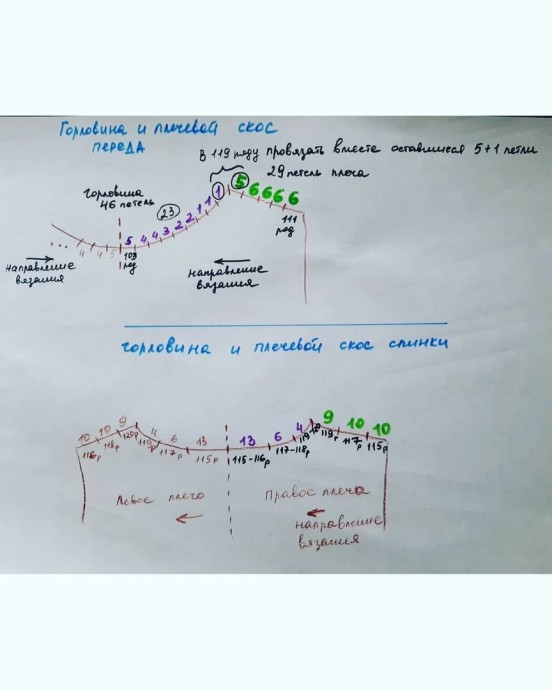 Горловина и плечевой скос
ПЕРЕДА
В 119 ряду провязать вместе оставшиеся 5+1 петли
29 петель плеча
горловина
46 петель
23
5 4 4 3 2 2 1 1 1
5 6 6 6 6
111
ряд
... 4 4 5
103
ряд
направление
вязания
направление
вязания
горловина и плечевой скос спинки
10 10 9 4 6 13 13 6 4 9 10 10
116р 118р 120р 119р 117р 115р 115-116р 117-118р 119 120 119р 117р 115р
Левое плечо
Правое плечо
направление
вязания